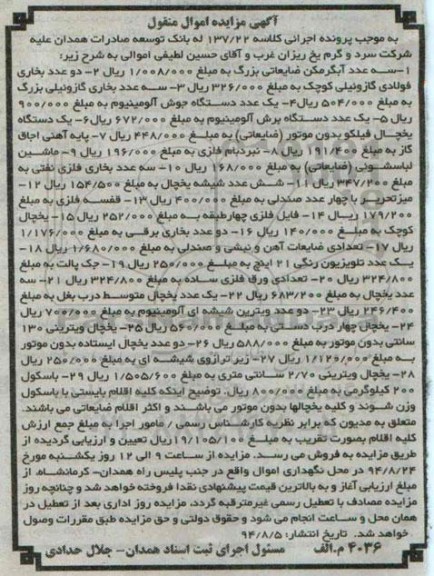 آگهی مزایده اموال منقول
به موجب پرونده اجرائی کلاسه ۱۳۷/۲۲ له بانک توسعه صادرات همدان علیه
شرکت سرد و گرم یخ ریزان غرب و آقای حسین لطیفی اموالی به شرح زیر:
۱-سه عدد آبگرمکن ضایعاتی بزرگ به مبلغ ۱/۰۰۸/۰۰۰ ریال ۲- دو عدد بخاری
فولادی گازوئیلی کوچک به مبلغ ۳۲۶/۰۰۰ ریال ۳- سه عدد بخاری گازوئیلی بزرگ
به مبلغ ۵۰۴/۰۰۰ ریال۴- یک عدد دستگاه جوش آلومینیوم به مبلغ ۹۰۰/۰۰۰
ریال ۵- یک عدد دستگاه برش آلومینیوم به مبلغ ۶۷۲/۰۰۰ ریال ۶- یک دستگاه
یخچال فیلکو بدون موتور (ضایعاتی) به مبلغ ۴۴۸/۰۰۰ ریال ۷- پایه آهنی اجاق
گاز به مبلغ ۱۹۱/۴۰۰ ریال ۸- نبردبام فلزی به مبلغ ۱۹۶/۰۰۰ ریال ۹- ماشین
لباسشوئی (ضایعاتی) به مبلغ ۱۶۸/۰۰۰ ریال ۱۰- سه عدد بخاری فلزی نفتی به
مبلغ ۳۴۷/۲۰۰ ریال ۱۱- شش عدد شیشه یخچال به مبلغ ۱۵۴/۵۰۰ ریال ۱۲-
میزتحریر با چهار عدد صندلی به مبلغ ۴۰۰/۰۰۰ ریال ۱۳- قفسه فلزی به مبلغ
۱۷۹/۲۰۰ ریال ۱۴- فایل فلزی چهارطبقه به مبلغ ۲۵۲/۰۰۰ ریال ۱۵- یخچال
کوچک به مبلغ ۱۴۰/۰۰۰ ریال ۱۶- دو عدد بخاری برقی به مبلغ ۱/۱۷۶/۰۰۰
ریال ۱۷- تعدادی ضایعات آهن و نبشی و صندلی به مبلغ ۱/۶۸۰/۰۰۰ ریال ۱۸-
یک عدد تلویزیون رنگی ۲۱ اینچ به مبلغ ۲۵۰/۰۰۰ ریال ۱۹- جک پالت به مبلغ
۳۲۴/۸۰۰ ریال ۲۰- تعدادی ورق فلزی ساده به مبلغ ۳۲۴/۸۰۰ ریال ۲۱- سه
عدد یخچال به مبلغ ۶۸۳/۲۰۰ ریال ۲۲- یک عدد یخچال متوسط درب بغل به مبلغ
۲۴۶/۴۰۰ ریال ۲۳- دو عدد ویترین شیشه ای آلومینیوم به مبلغ ۷۰۰/۰۰۰ ریال
۲۴- یخچال چهار درب دستی به مبلغ ۵۶۰/۰۰۰ ریال ۲۵- یخچال ویترینی ۱۳۰
سانتی بدون موتور به مبلغ ۵۸۸/۰۰۰ ریال ۲۶- دو عدد یخچال ایستاده بدون موتور
به مبلغ ۱/۱۲۶/۰۰۰ ریال ۲۷- زیر ترازوی شیشه ای به مبلغ ۲۵۰/۰۰۰ ریال
۲۸- یخچال ویترینی ۲/۷۰ سانتی متری به مبلغ ۱/۵۰۵/۶۰۰ ریال ۲۹- باسکول
۲۰۰ کیلوگرمی به مبلغ ۸۰۰/۰۰۰ ریال. توضیح اینکه کلیه اقلام بایستی با باسکول
وزن شوند و کلیه یخچالها بدون موتور می باشند و اکثر اقلام ضایعاتی می باشند.
متعلق به مدیون که برابر نظریه کارشناس رسمی / مامور اجرا به مبلغ جمع ارزش
کلیه اقلام بصورت تقریب به مبلغ ۱۹/۱۰۵/۱۰۰ریال تعیین و ارزیابی گردیده از
طریق مزایده به فروش می رسد. مزایده از ساعت ۹ الی ۱۲ روز یکشنبه مورخ
۹۴/۸/۲۴ در محل نگهداری اموال واقع در جنب پلیس راه همدان- کرمانشاه، از
مبلغ ارزیابی آغاز و به بالاترین قیمت پیشنهادی نقدا فروخته خواهد شد و چنانچه روز
مزایده مصادف با تعطیل رسمی غیرمترقبه گردد، مزایده روز اداری بعد از تعطیل در
همان محل و ساعت انجام می شود و حقوق دولتی و حق مزایده طبق مقررات وصول
خواهد شد. تاریخ انتشار: ۹۴/۸/۵
۴۰۳۶ م.الف مسئول اجرای ثبت اسناد همدان- جلال حدادی